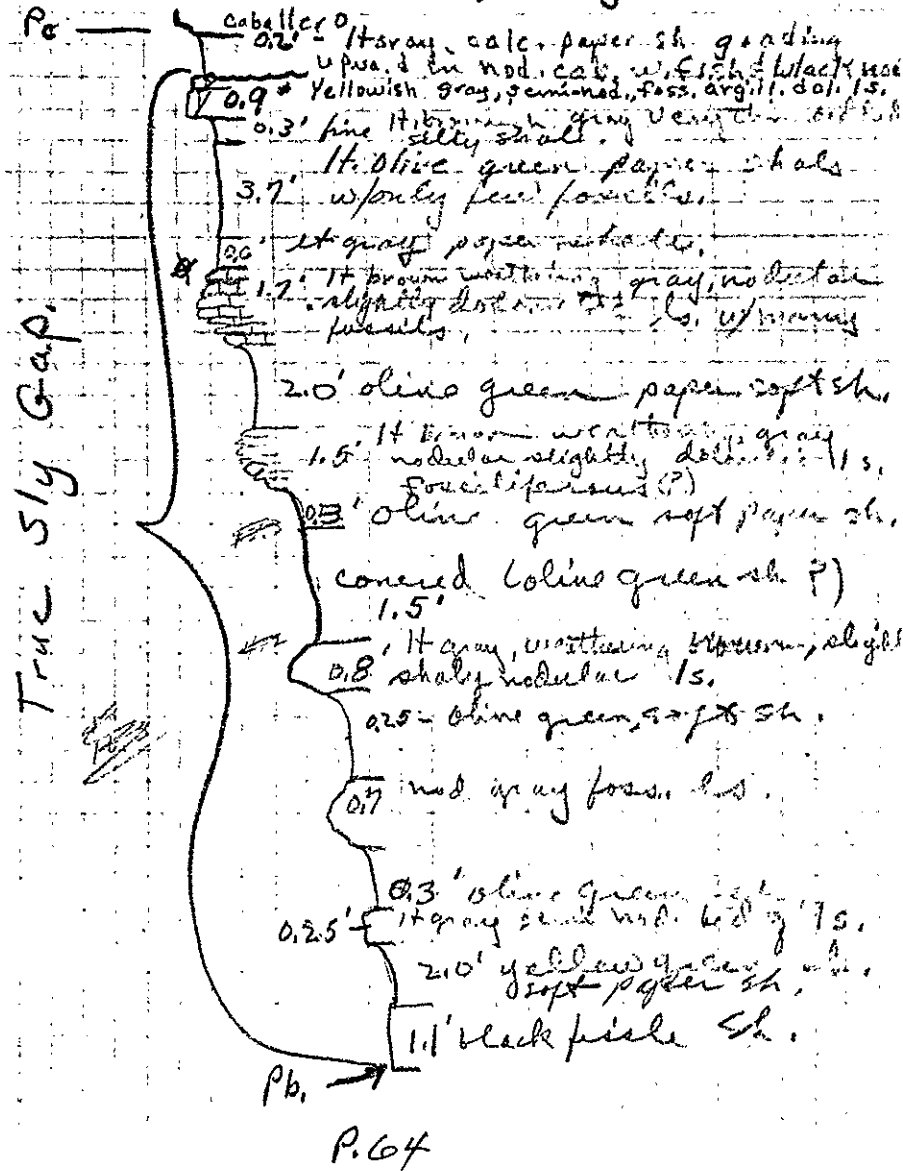 Pc
Caballero
0.2' - lt gray, calc. paper sh grading
upward in nod. calc. w. fish & black nod
0.9 * Yellowish gray, semi-nod., foss. argill. dol. ls.
0.3' fine lt brownish gray
silty shale.
lt. olive green paper shale
3.7' w/only few fossils.
0.6' lt gray paper shale.
1.7' lt brown weathering gray, nodular
slightly dolom. ls. w/many
fossils.
2.0' olive green paper soft sh.
lt brown weathering, gray
1.5' nodular slightly ls,
fossiliferous (?)
0.3' olive green soft paper sh.
covered (olive green sh ?)
1.5'
lt gray, weathering brown,
0.8' shaly nodular ls.
0.25 - olive green, soft sh.
0.7 nod gray foss. ls.
0.3' olive green
0.25' lt gray nod. bed of ls.
2.0' yellow green sh.
soft paper sh.
1.1' black fissle sh.
Pb.
True Sly Gap.
P.64